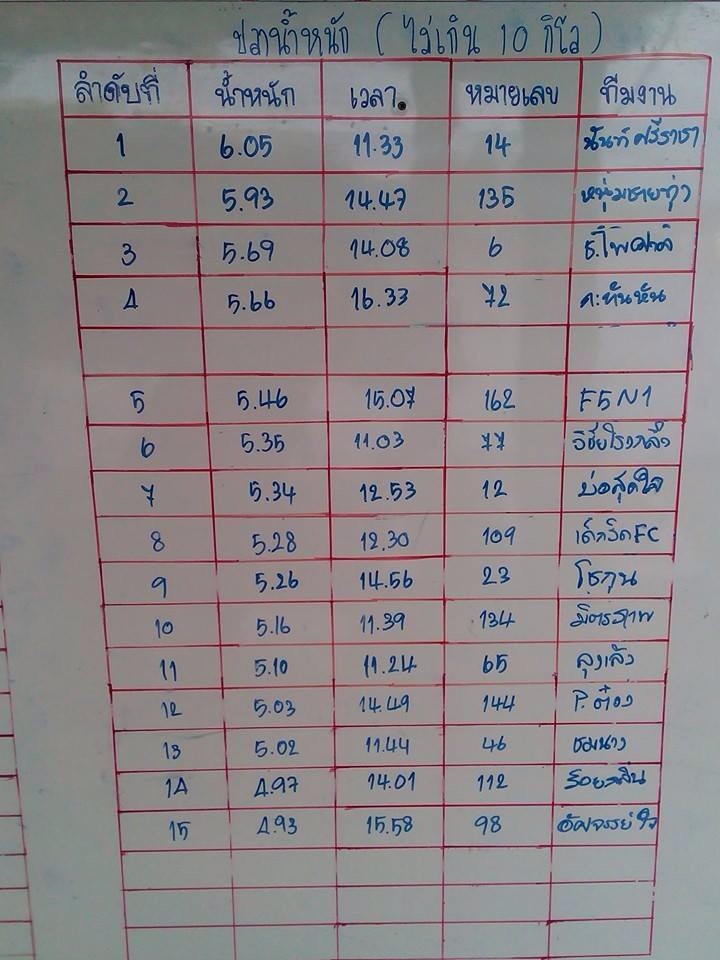 ปลาน้ำหนัก ( ไม่เกิน 10 กิโล )
ลำดับที่ น้ำหนัก เวลา. หมายเลข ทีมงาน
1 6.05 11.33 14 นันท์ ศรีราชา
2 5.93 14.47 135 หนุ่มชายทุ่ง
3 5.69 14.08 6
4 5.66 16.33 72 ค.ทันหัน
5 5.46 15.07 162 F5 N1
6 5.35 11.03 77
7 5.34 12.53 12 บ่อสุดใจ
8 5.28 12.30 109 เด็กวัดFC
9 5.26 14.56 23 โชกุน
10 5.16 11.39 134 มิตรภาพ
11 5.10 11.24 65
12 5.03 14.49 144 P.ต๋อง
13 5.02 11.44 46 ชมนาง
14 4.97 14.01 112
15 4.93 15.58 98